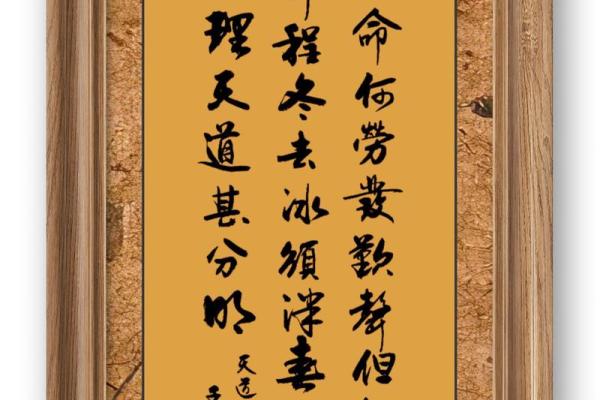 命何勞發歎聲但
程冬去冰須泮春
理天道甚分明
天道